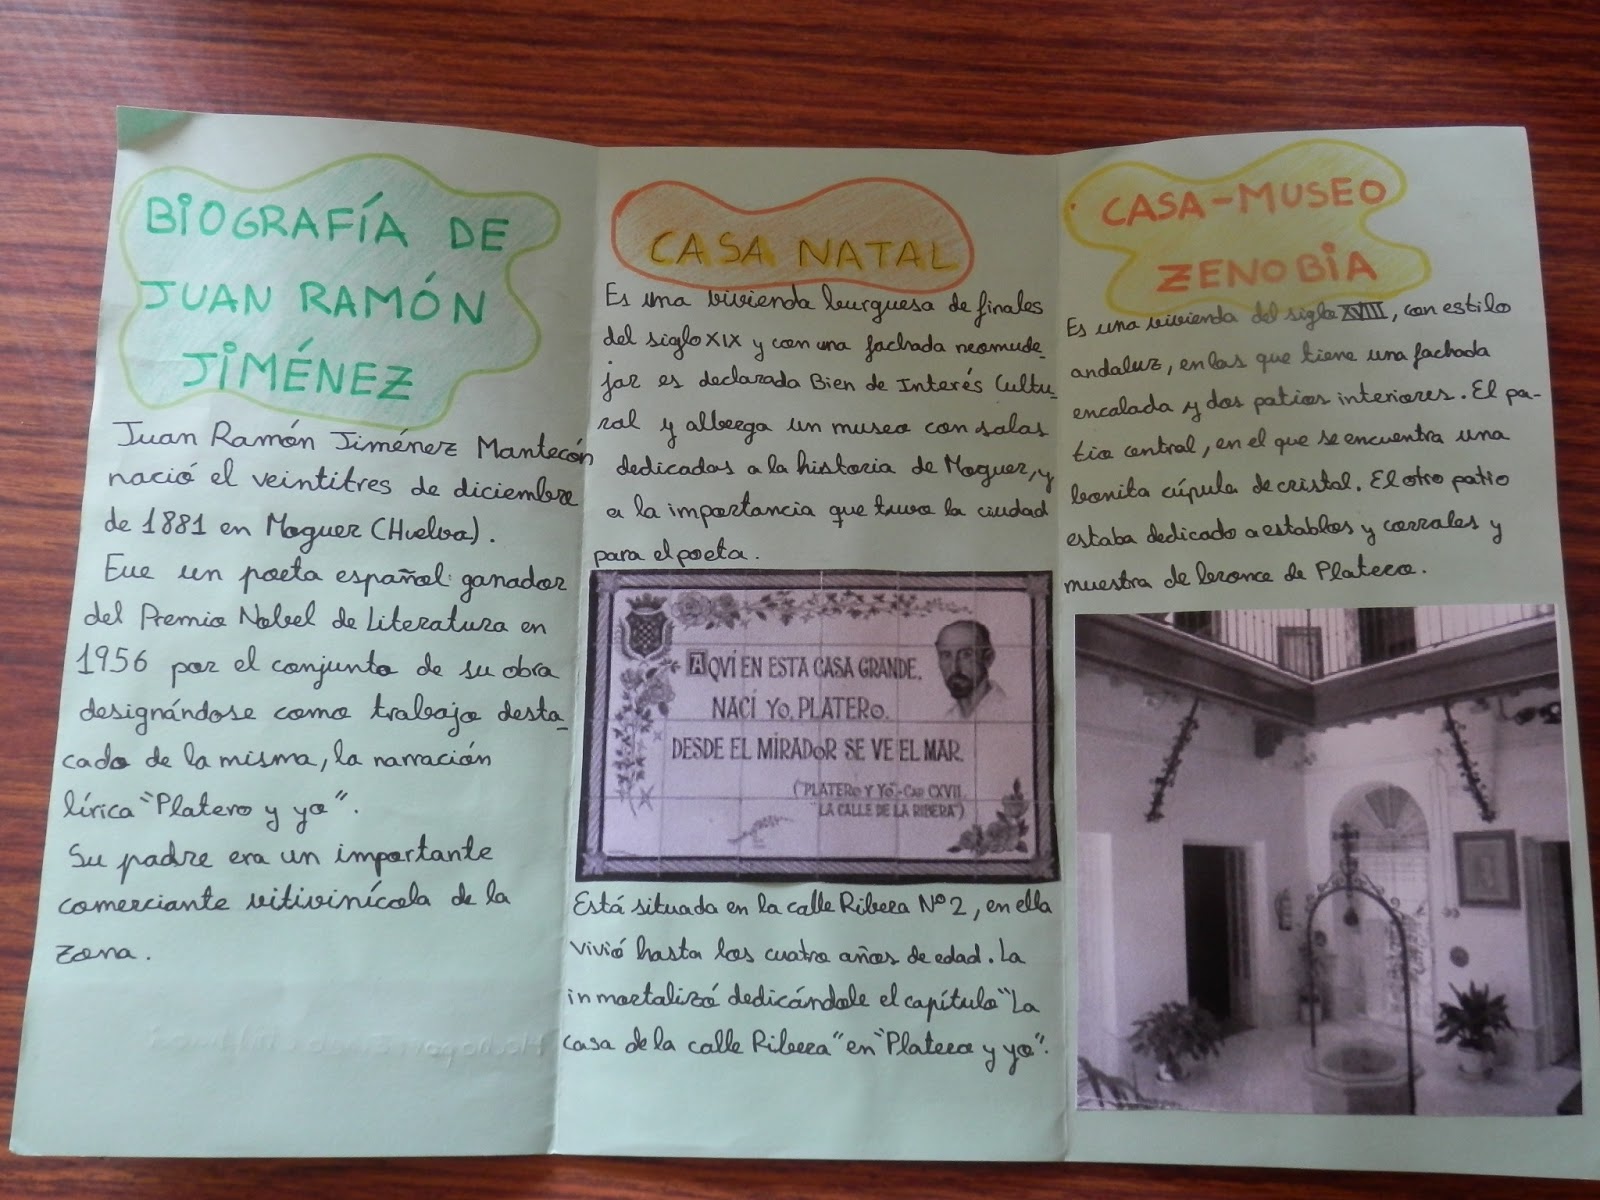 BIOGRAFÍA DE
JUAN RAMÓN
JIMÉNEZ
Juan Ramón Jiménez Mantecón
nació el veintitres de diciembre
de 1881 en Moguer (Huelva).
Fue un poeta español ganador
del Premio Nobel de Literatura en
1956 por el conjunto de su obra
designándose como trabajo desta-
cado de la misma, la narración
lírica "Platero y yo".
Su padre era un importante
comerciante vitivinícola de la
zona.
CASA NATAL
Es una vivienda burguesa de finales
del siglo XIX y con una fachada neomude-
jar es declarada Bien de Interés Cultu-
ral y alberga un museo con salas
dedicadas a la historia de Moguer, y
a la importancia que tuvo la ciudad
para el poeta.
AQVÍ EN ESTA CASA GRANDE,
NACÍ YO, PLATERO.
DESDE EL MIRADOR SE VE EL MAR.
("PLATERO Y YO",-CAP CXVII.
"LA CALLE DE LA RIBERA")
Está situada en la calle Ribera Nº 2, en ella
vivió hasta los cuatro años de edad. La
inmortalizó dedicándole el capítulo "La
casa de la calle Ribera" en "Platero y yo".
CASA-MUSEO
ZENOBIA
Es una vivienda del siglo XVIII, con estilo
andaluz, en las que tiene una fachada
encalada y dos patios interiores. El pa-
tio central, en el que se encuentra una
bonita cúpula de cristal. El otro patio
estaba dedicado a establos y corrales y
muestra de bronce de Platero.